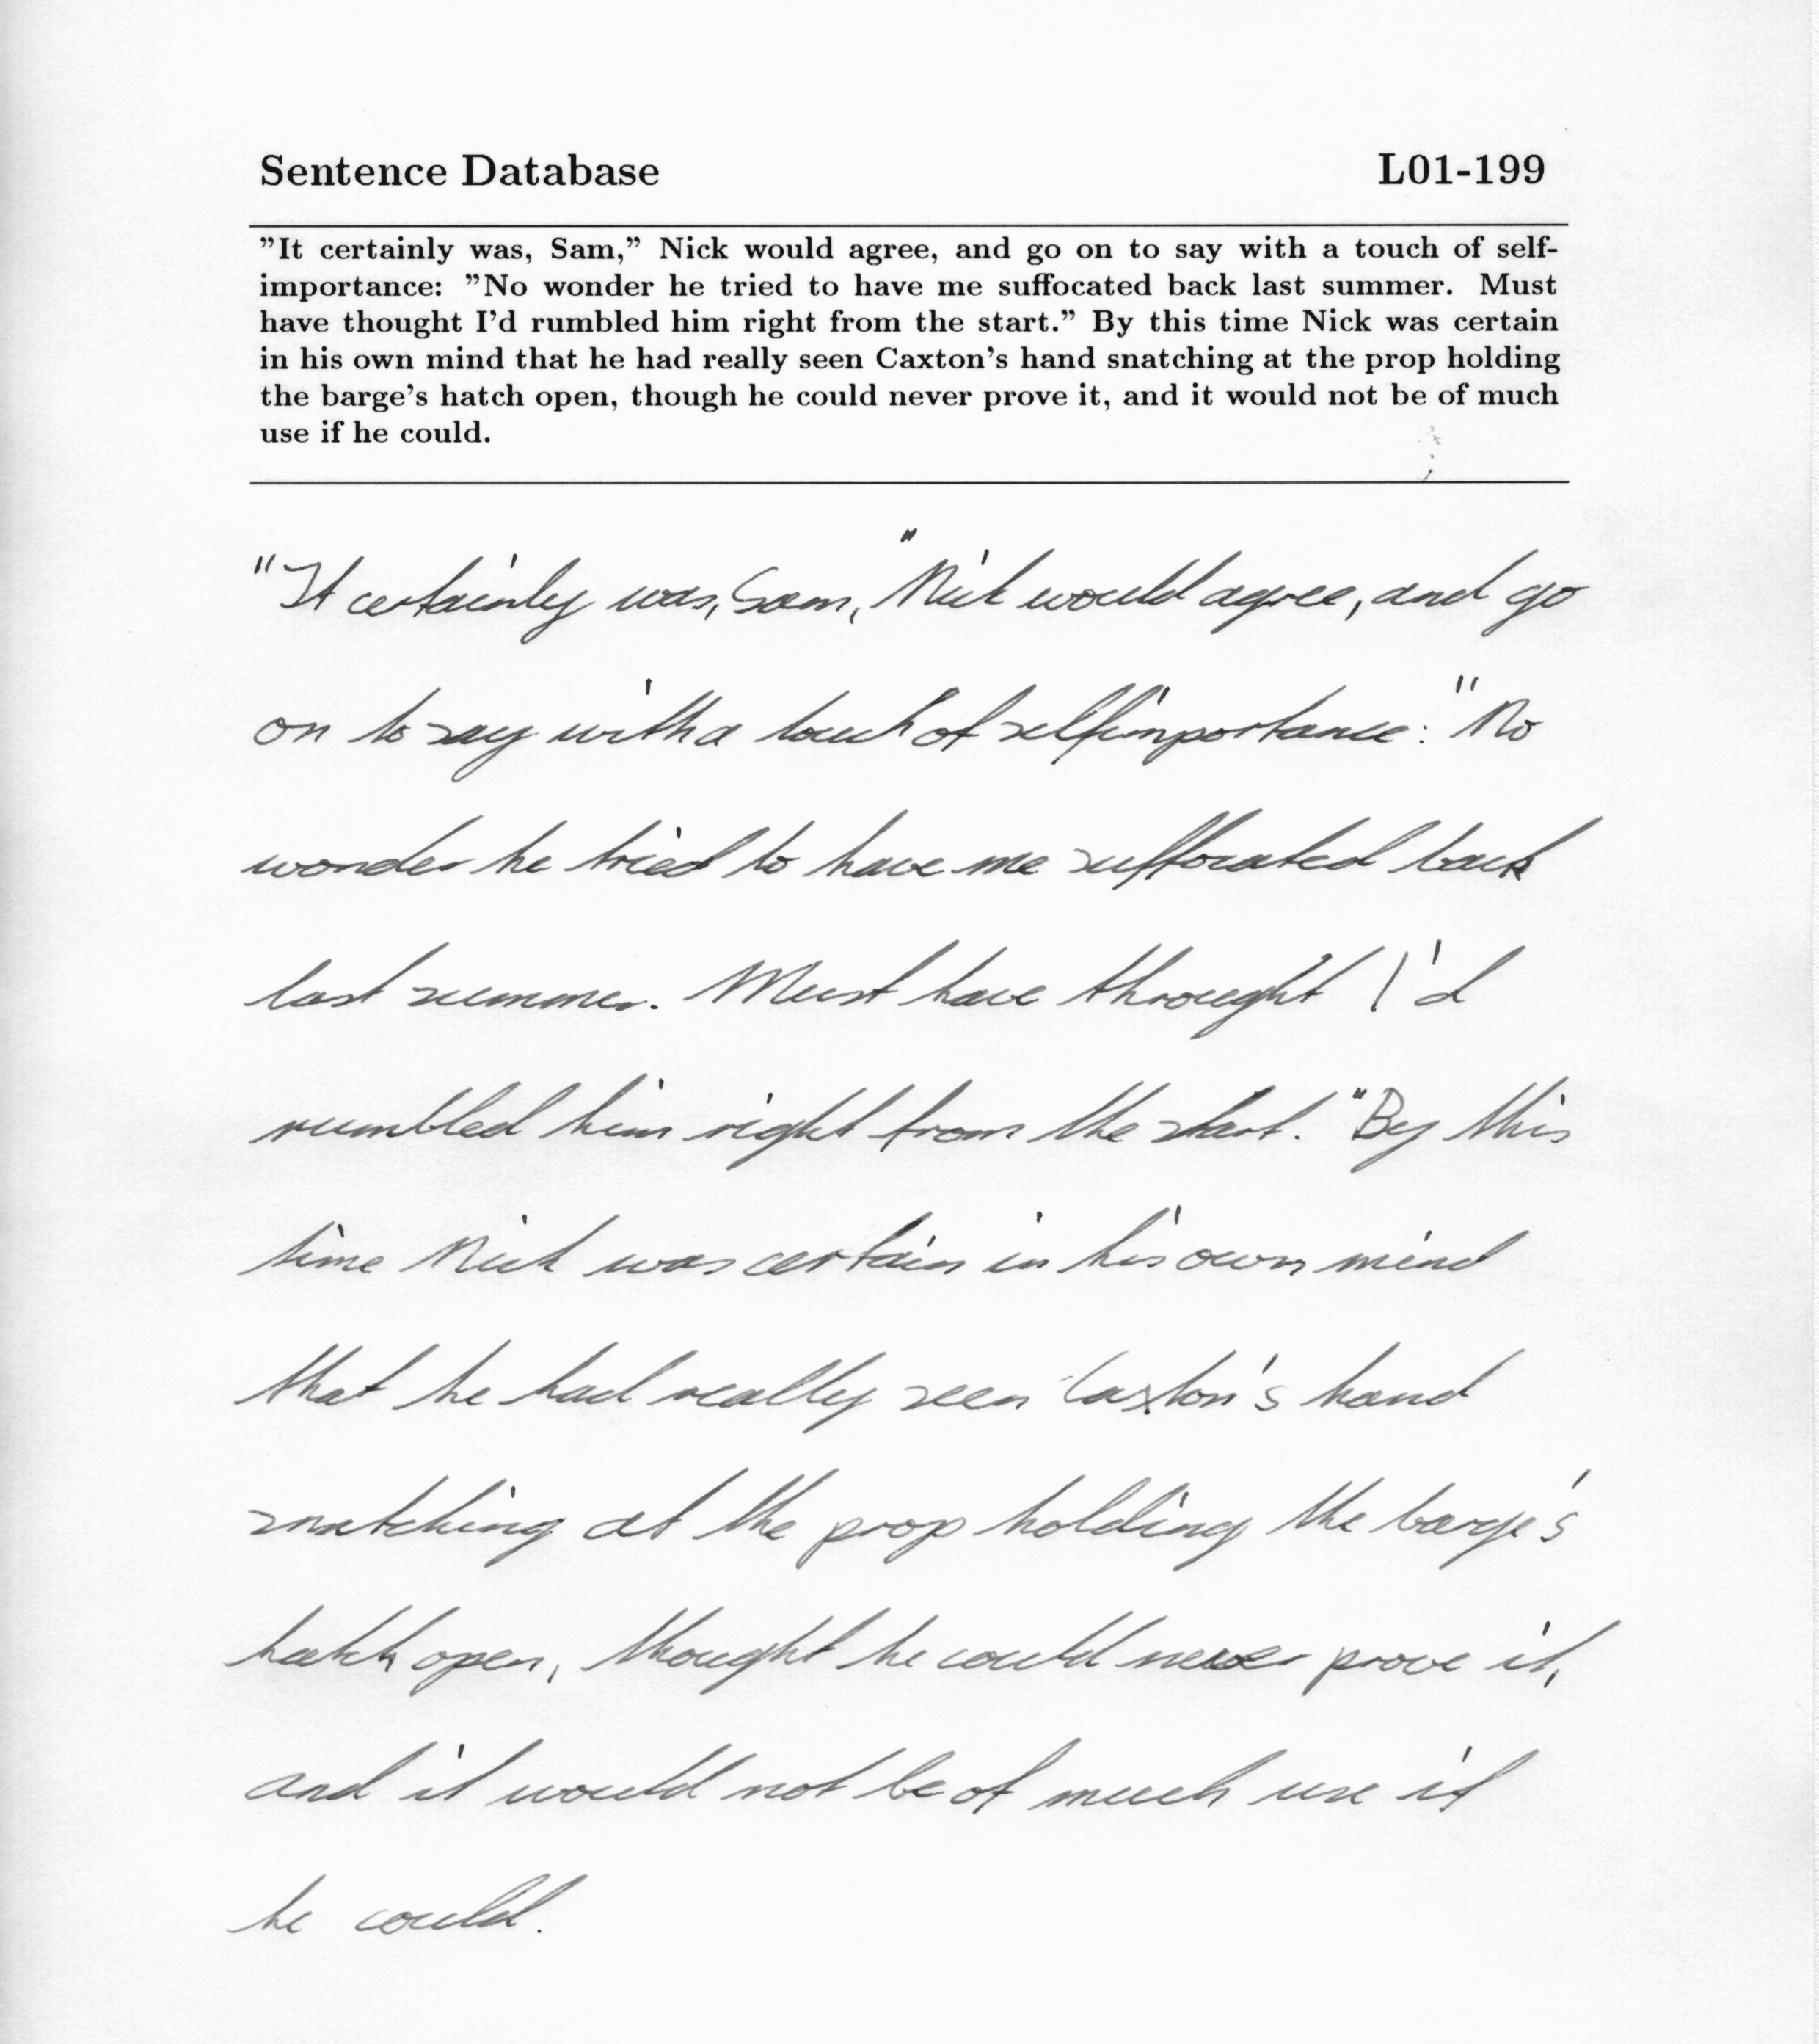 Sentence Database L01-199
"It certainly was, Sam," Nick would agree, and go on to say with a touch of self-
importance: "No wonder he tried to have me suffocated back last summer. Must
have thought I'd rumbled him right from the start." By this time Nick was certain
in his own mind that he had really seen Caxton's hand snatching at the prop holding
the barge's hatch open, though he could never prove it, and it would not be of much
use if he could.
"It certainly was, Sam," Nick would agree, and go
on to say with a touch of selfimportance: "No
wonder he tried to have me suffocated back
last summer. Must have throught I'd
rumbled him right from the start." By this
time Nick was certain in his own mind
that he had really seen Caxton's hand
snatching at the prop holding the barge's
hatch open, thought he could never prove it,
and it would not be of much use if
he could.